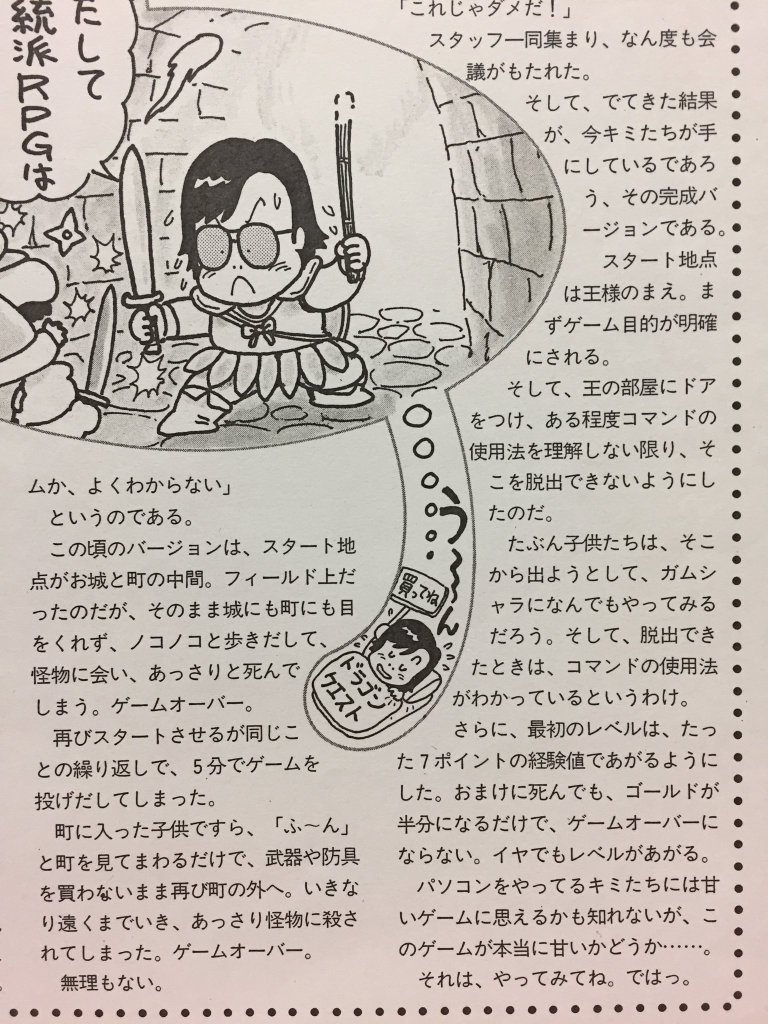 たして
統派RPGは
ムか、よくわからない」
というのである。
この頃のバージョンは、スタート地
点がお城と町の中間。フィールド上だ
ったのだが、そのまま城にも町にも目
をくれず、ノコノコと歩きだして、
怪物に会い、あっさりと死んで
しまう。ゲームオーバー。
再びスタートさせるが同じこ
との繰り返しで、5分でゲームを
投げだしてしまった。
町に入った子供ですら、「ふ〜ん」
と町を見てまわるだけで、武器や防具
を買わないまま再び町の外へ。いきな
り遠くまでいき、あっさり怪物に殺さ
れてしまった。ゲームオーバー。
無理もない。
「これじゃダメだ!」
スタッフ一同集まり、なん度も会
議がもたれた。
そして、でてきた結果
が、今キミたちが手
にしているであろ
う、その完成バ
ージョンである。
スタート地点
は王様のまえ。ま
ずゲーム目的が明確
にされる。
そして、王の部屋にドア
をつけ、ある程度コマンドの
使用法を理解しない限り、そ
こを脱出できないようにし
たのだ。
たぶん子供たちは、そこ
から出ようとして、ガムシ
ャラになんでもやってみる
だろう。そして、脱出でき
たときは、コマンドの使用法
がわかっているというわけ。
さらに、最初のレベルは、たっ
た7ポイントの経験値であがるように
した。おまけに死んでも、ゴールドが
半分になるだけで、ゲームオーバーに
ならない。イヤでもレベルがあがる。
パソコンをやってるキミたちには甘
いゲームに思えるかも知れないが、こ
のゲームが本当に甘いかどうか……。
それは、やってみてね。ではっ。
う〜〜ん
買ってね
ドラゴン
クエスト